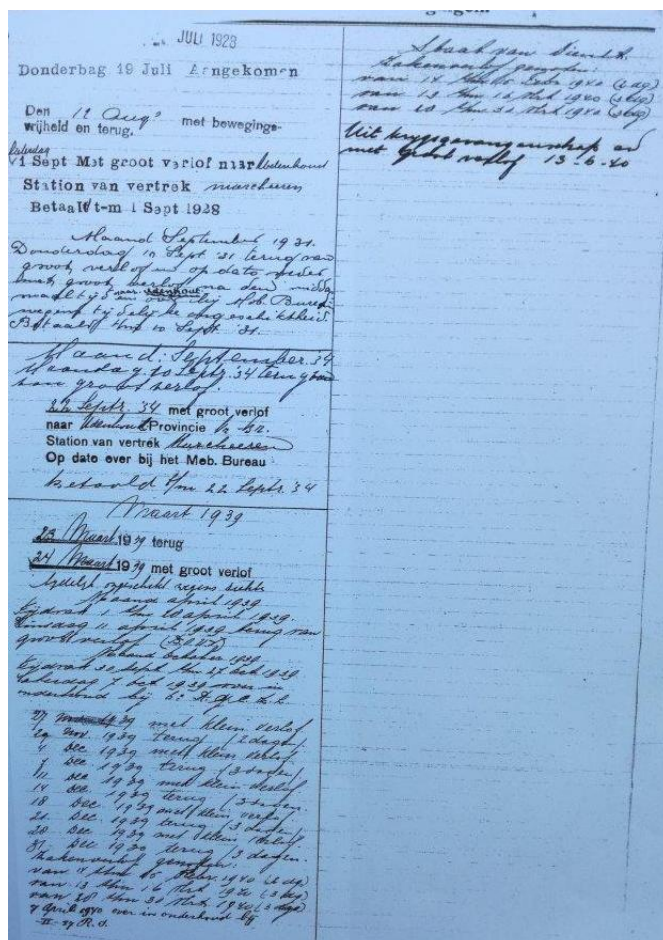 JULI 1928
Donderdag 19 Juli Aangekomen
Den 12 Aug met bewegings-
vrijheid en terug.
Zaterdag
1 Sept Met groot verlof naar Udenhout
Station van vertrek marcheeren
Betaalt t-m 1 Sept 1928
Maand September 1931.
Donderdag 10 Sept '31 terug van
groot verlof en op dato weder
met groot verlof na den middag
maaltijd naar Udenhout en bij Mob. Bureau
wegens tijdelijke ongeschiktheid.
Betaald t/m 10 Sept. '31.
Maand: September '34
Maandag 10 Septr. '34 terug van
van groot verlof.
22 Septr. 34 met groot verlof
naar Udenhout Provincie N. Br.
Station van vertrek Marcheeren
Op dato over bij het Mob. Bureau
betaald t/m 22 Septr. 34
Maart 1939
23 Maart 1939 terug
24 Maart 1939 met groot verlof
tijdelijk ongeschikt wegens ziekte
Maand april 1939
Tijdvak 1 t/m 10 april 1939.
Dinsdag 11 april 1939 terug van
groot verlof
Maand October 1939
Tijdvak 30 Sept t/m 27 Oct 1939
Zaterdag 7 Oct 1939 over in
onderhoud bij
27 1939 met klein verlof
29 Nov. 1939 terug (2 dagen)
4 Dec 1939 met klein verlof
7 Dec 1939 terug (3 dagen)
11 Dec 1939 met klein verlof
14 Dec. 1939 terug (3 dagen.
18 Dec. 1939 met klein verlof
21 Dec. 1939 terug (3 dagen)
28 Dec 1939 met klein verlof
31 Dec. 1939 terug (3 dagen.
Zakenverlof genoten:
van t/m 1940
van 13 t/m 16 Mrt 1940 (3 dag)
van 28 t/m 30 Mrt 1940 (3 dage)
7 April 1940 over in onderhoud bij
II-27 R.I.
Staat van Dienst.
Zakenverlof genoten:
van 14 t/m 1940
van 13 t/m 16 Mrt 1940 (3 dag)
van 28 t/m 30 Mrt 1940 (3 dag)
Uit krijgsgevangenschap en
met groot verlof 13-6-40